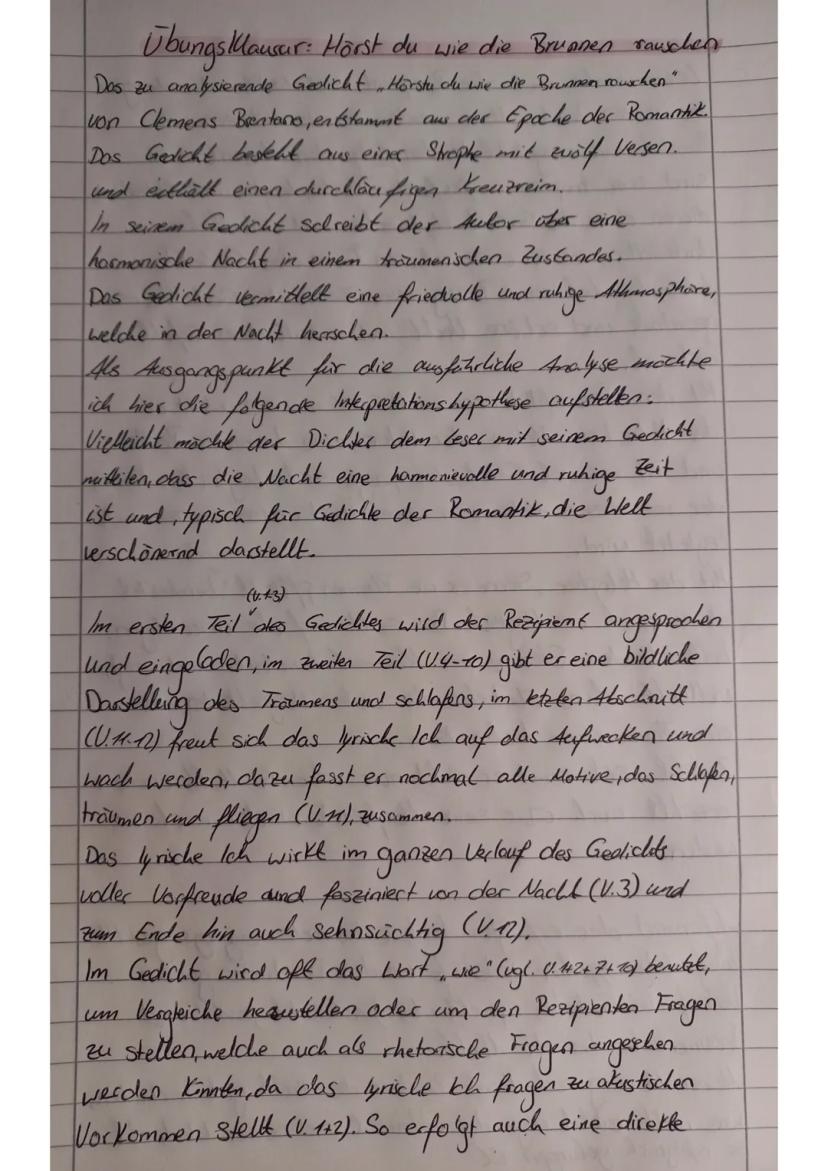 Übungsklausur: Hörst du wie die Brunnen rauschen
Das zu analysierende Gedicht „Hörstu du wie die Brunnen rauschen"
von Clemens Brentano, entstammt aus der Epoche der Romantik.
Das Gedicht besteht aus einer Strophe mit zwölf Versen.
und enthält einen durchläufigen Kreuzreim.
In seinem Gedicht schreibt der Autor über eine
harmonische Nacht in einem träumerischen Zustandes.
Das Gedicht vermittelt eine friedvolle und ruhige Athmosphäre,
welche in der Nacht herrschen.
Als Ausgangspunkt für die ausführliche Analyse möchte
ich hier die folgende Interpretationshypothese aufstellen:
Vielleicht möchte der Dichter dem Leser mit seinem Gedicht
mitteilen, dass die Nacht eine harmonievolle und ruhige Zeit
ist und, typisch für Gedichte der Romantik, die Welt
verschönernd darstellt.
(V.1-3)
Im ersten Teil des Gedichtes wird der Rezipient angesprochen
und eingeladen, im zweiten Teil (V.4-10) gibt er eine bildliche
Darstellung des Träumens und schlafens, im letzten Abschnitt
(V.11-12) freut sich das lyrische Ich auf das Aufwecken und
wach werden, dazu fasst er nochmal alle Motive, das Schlafen,
träumen und fliegen (V.11), zusammen.
Das lyrische Ich wirkt im ganzen Verlauf des Gedichts
voller Vorfreude und fasziniert von der Nacht (V.3) und
zum Ende hin auch sehnsüchtig (V.12).
Im Gedicht wird oft das Wort „wie" (vgl. V.1+2+7+10) benutzt,
um Vergleiche herzustellen oder um den Rezipienten Fragen
zu stellen, welche auch als rhetorische Fragen angesehen
werden könnten, da das lyrische Ich fragen zu akustischen
Vorkommen stellt (V.1+2). So erfolgt auch eine direkte